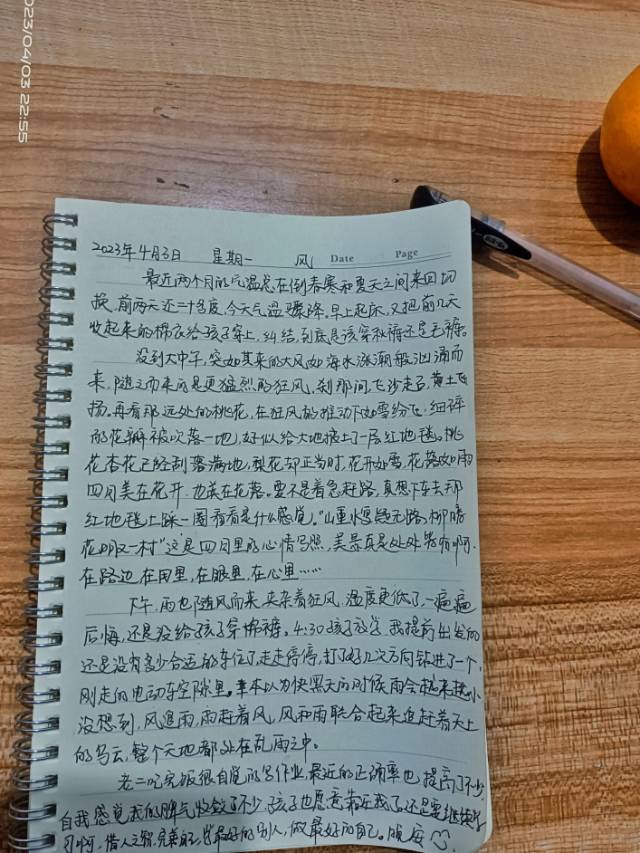 2023/04/03 22:55
2023年4月3日 星期一 风 Date Page
最近两个月的气温总在倒春寒和夏天之间来回切
换,前两天还二十多度,今天气温骤降,早上起床,又把前几天
收起来的棉衣给孩子穿上,纠结,到底是该穿秋裤还是毛裤。
没到大中午,突如其来的大风如海水涨潮般汹涌而
来,随之而来的是更猛烈的狂风,刹那间飞沙走石,黄土飞
扬。再看那远处的桃花,在狂风的推动下如雪纷飞,细碎
的花瓣被吹落一地,好似给大地披上了一层红地毯。桃
花杏花已经刮落满地,梨花却正当时,花开如雪,花落如雨
四月美在花开,也美在花落。要不是着急赶路,真想下车去那
红地毯上踩一圈看看是什么感觉。“山重水复疑无路,柳暗
花明又一村”这是四月里的心情写照,美景真是处处皆有啊。
在路边,在田里,在眼里,在心里……
下午,雨也随风而来,夹杂着狂风,温度更低了,一遍遍
后悔,还是没给孩子穿棉裤。4:30孩子放学,我提前出发的
还是没有多少合适的车位了,走走停停,打了好几次方向钻进了一个
刚走的电动车空隙里。本以为快黑天的时候雨会越来越小
没想到,风追雨,雨赶着风,风和雨联合起来追赶着天上
的乌云,整个天地都处在乱雨之中。
老二吃完饭很自觉的写作业,最近的正确率也提高了不少
自我感觉我的脾气收敛了不少,孩子也愿意靠近我了,还是要继续学
习啊,借人之智,完善自己,学最好的别人,做最好的自己。晚安